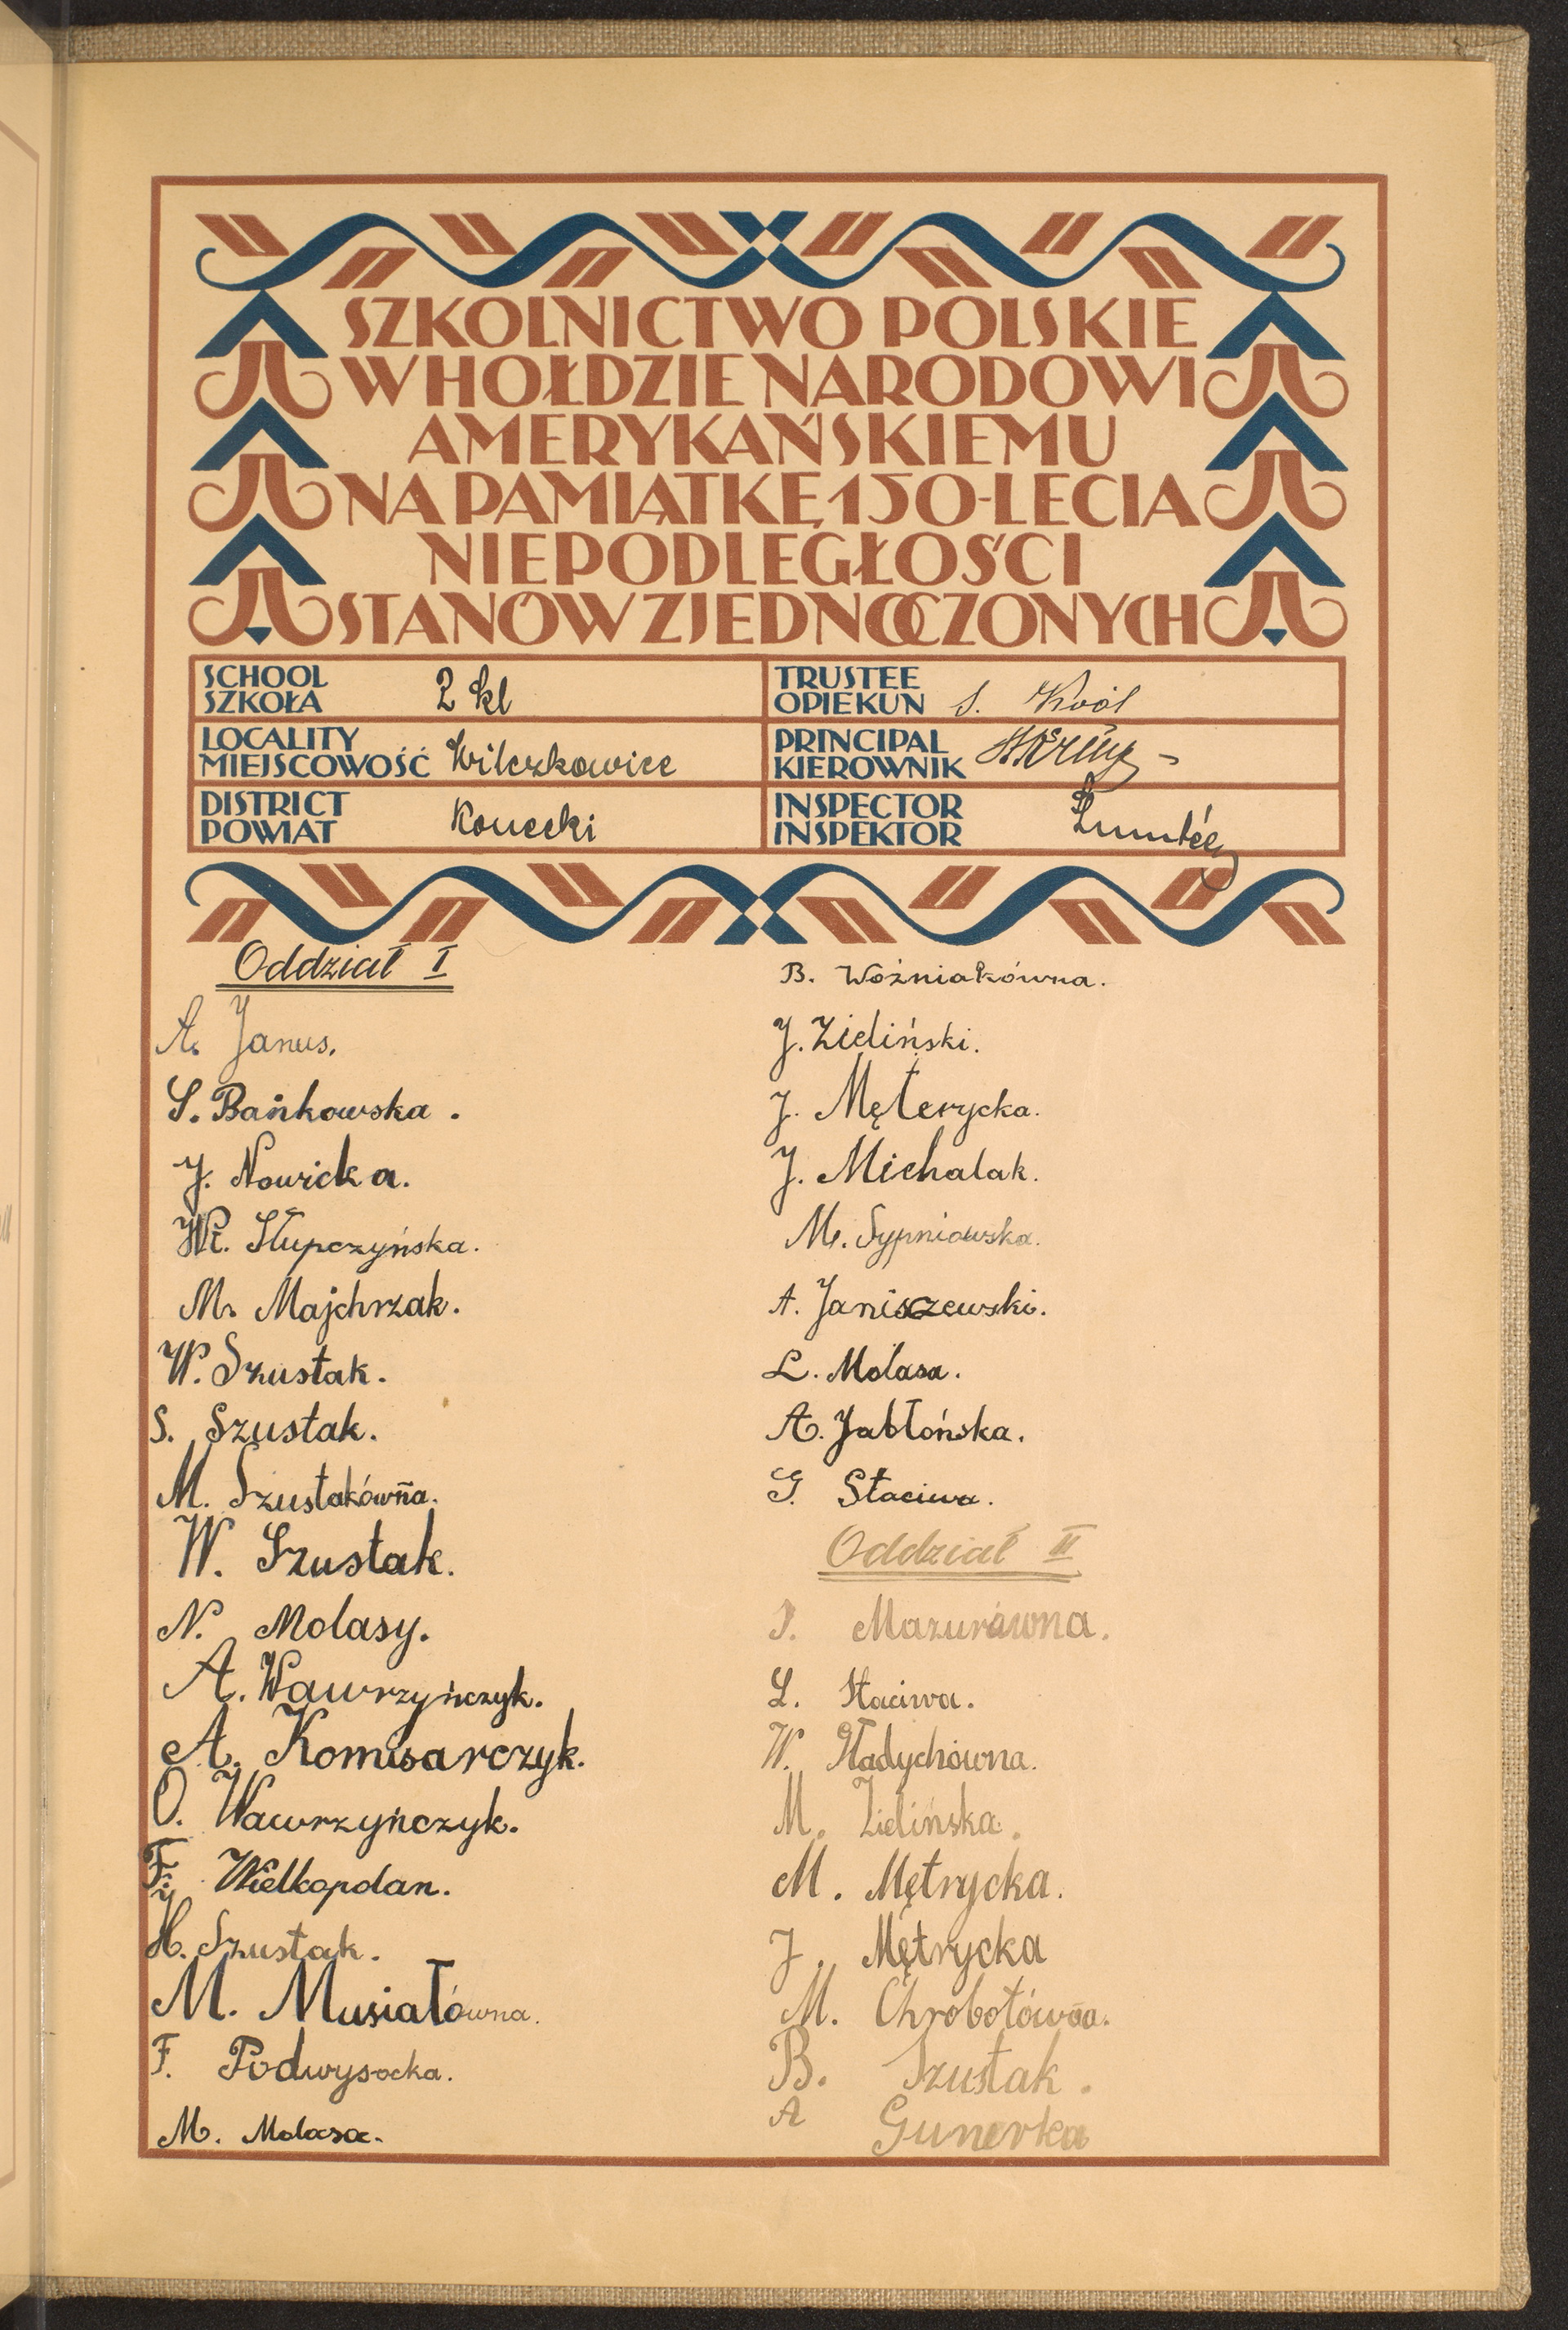 SZKOLNICTWO POLSKIE
W HOŁDZIE NARODOWI
AMERYKAŃSKIEMU
NA PAMIĄTKĘ 150-LECIA
NIEPODLEGŁOŚCI
STANÓW ZJEDNOCZONYCH
SCHOOL
SZKOŁA 2 kl
TRUSTEE
OPIEKUN S. Król
LOCALITY
MIEJSCOWOŚĆ Wilczkowice
PRINCIPAL
KIEROWNIK
DISTRICT
POWIAT Konecki
INSPECTOR
INSPEKTOR
Oddział I
A. Janus.
S. Bańkowska.
J. Nowicka.
Wł. Słupczyńska.
M. Majchrzak.
W. Szustak.
S. Szustak.
M. Szustakówna.
W. Szustak.
N. Molasy.
A. Wawrzyńczyk.
A. Komisarczyk.
O. Wawrzyńczyk.
F. Wielkopolan.
H. Szustak.
M. Musiałówna.
F. Podwysocka.
M. Molasa.
B. Woźniakówna.
J. Zieliński.
J. Męterycka.
J. Michalak.
M. Sypniowska.
A. Janiszewski.
L. Molasa.
A. Jabłońska.
G. Staciwa.
Oddział II
Mazurówna.
L. Staciwa.
W. Gładychówna.
M. Zielińska.
M. Mętrycka.
J. Mętrycka
M. Chrobotówna.
B. Szustak.
A Gunerka